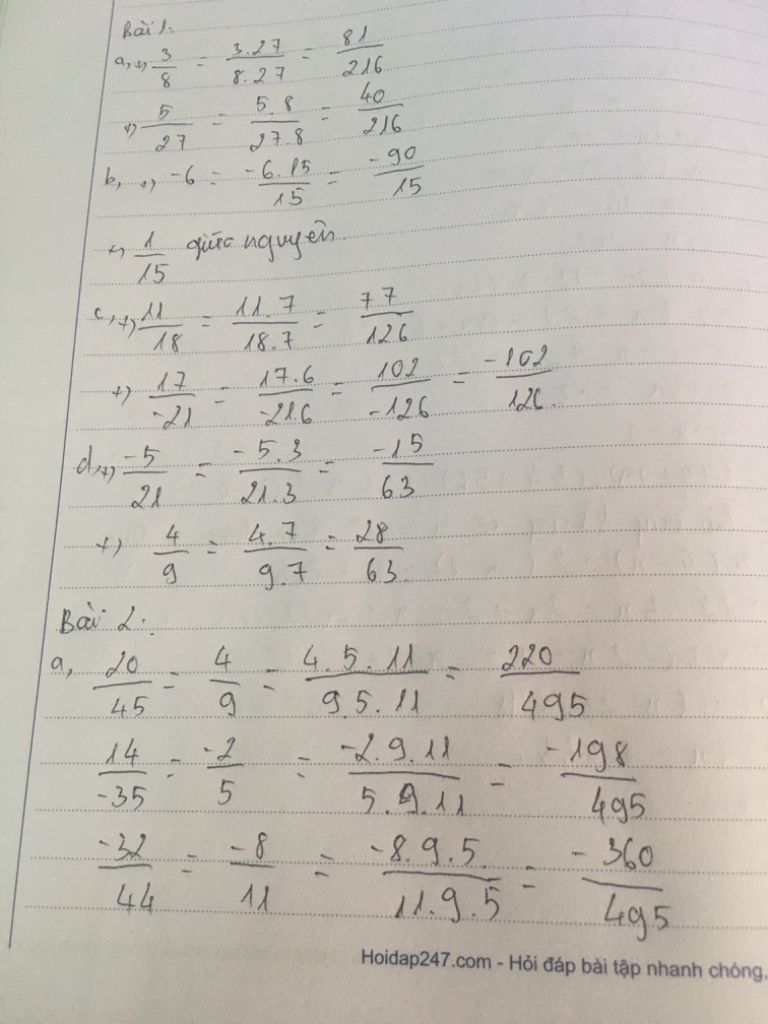 Bài 1:
a, +) 3/8 = 3.27/8.27 = 81/216
+) 5/27 = 5.8/27.8 = 40/216
b, +) -6 = -6.15/15 = -90/15
+) 1/15 giữ nguyên.
c, +) 11/18 = 11.7/18.7 = 77/126
+) 17/-21 = 17.6/-21.6 = 102/-126 = -102/126.
d, +) -5/21 = -5.3/21.3 = -15/63
+) 4/9 = 4.7/9.7 = 28/63.
Bài 2:
a, 20/45 = 4/9 = 4.5.11/9.5.11 = 220/495
14/-35 = -2/5 = -2.9.11/5.9.11 = -198/495
-32/44 = -8/11 = -8.9.5./11.9.5 = -360/495
Hoidap247.com - Hỏi đáp bài tập nhanh chóng,